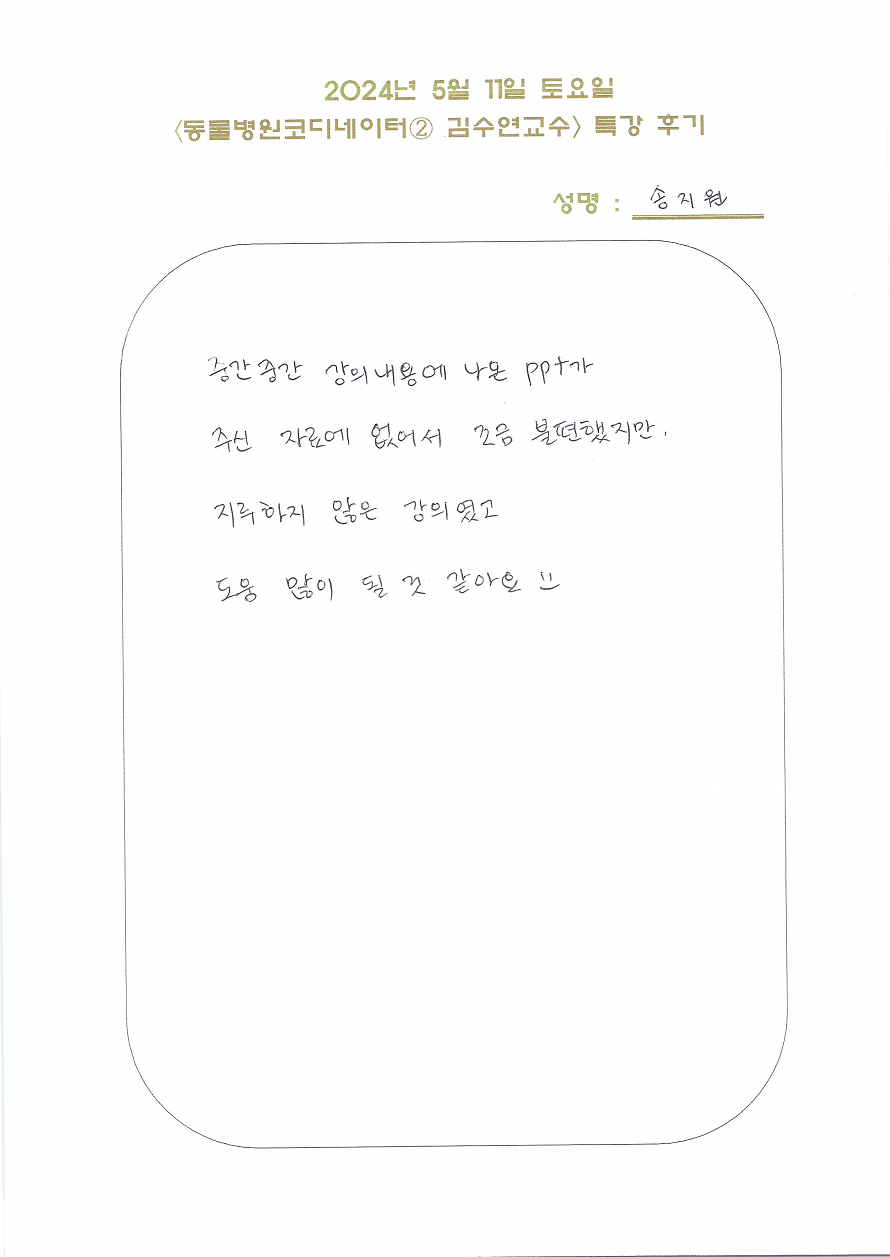 2024년 5월 11일 토요일
<동물병원코디네이터② 김수연교수> 특강 후기
성명 : 송지원
중간중간 강의내용에 나온 ppt가
주신 자료에 없어서 조금 불편했지만,
지루하지 않은 강의였고
도움 많이 될 것 같아요 :)